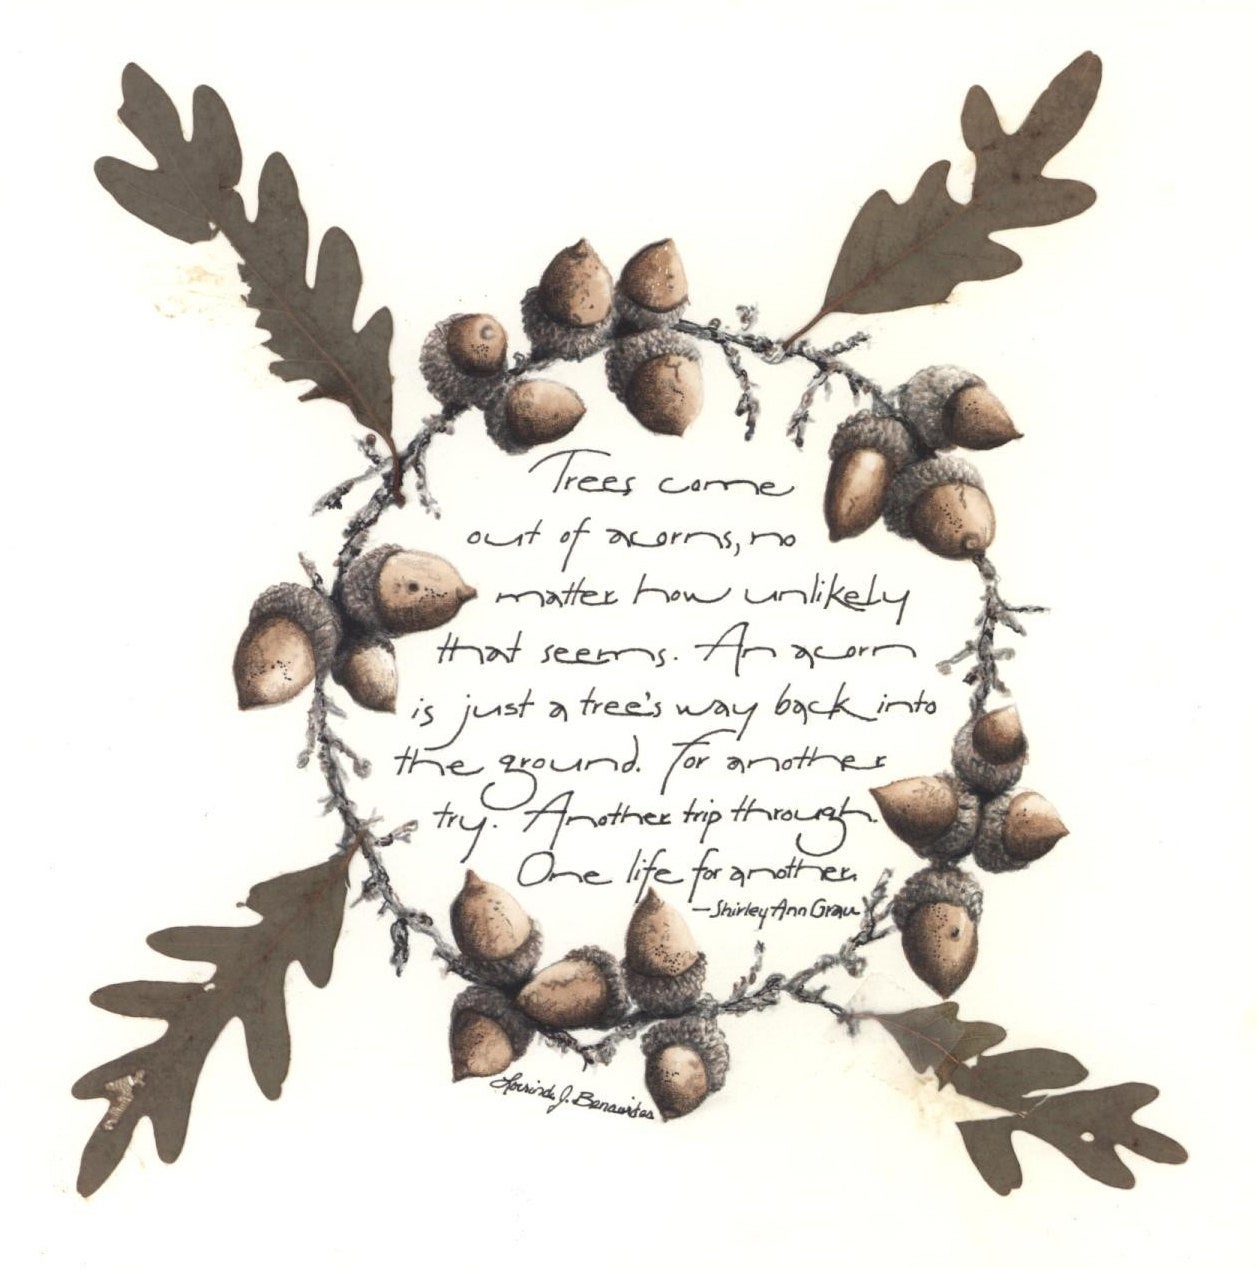 Trees come
out of acorns, no
matter how unlikely
that seems. An acorn
is just a tree's way back into
the ground. For another
try. Another trip through.
One life for another.
—Shirley Ann Grau
J. Benavides